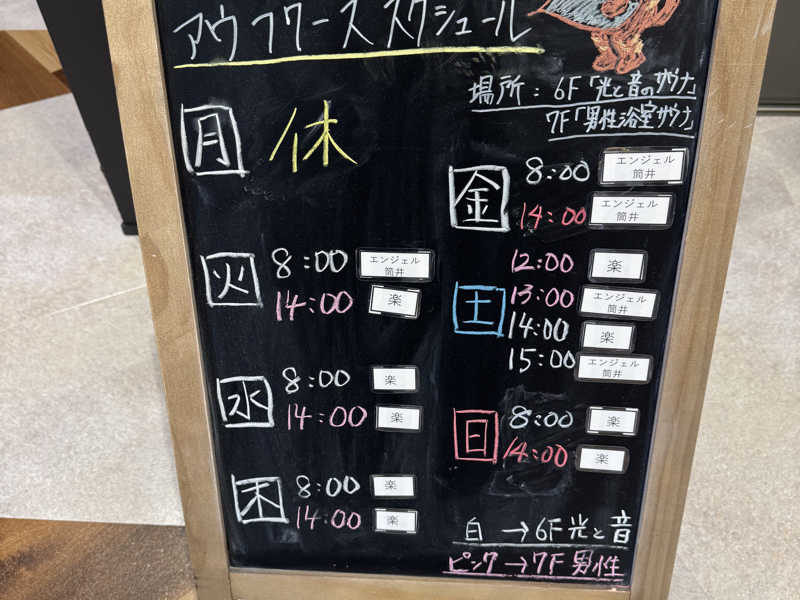 アウフグース スケジュール
場所：6F「光と音のサウナ」
7F「男性浴室サウナ」
月 休
火 8:00 エンジェル筒井
14:00 楽
水 8:00 楽
14:00 楽
木 8:00 楽
14:00 楽
金 8:00 エンジェル筒井
14:00 エンジェル筒井
土 12:00 楽
13:00 エンジェル筒井
14:00 楽
15:00 エンジェル筒井
日 8:00 楽
14:00 楽
白→6F光と音
ピンク→7F男性